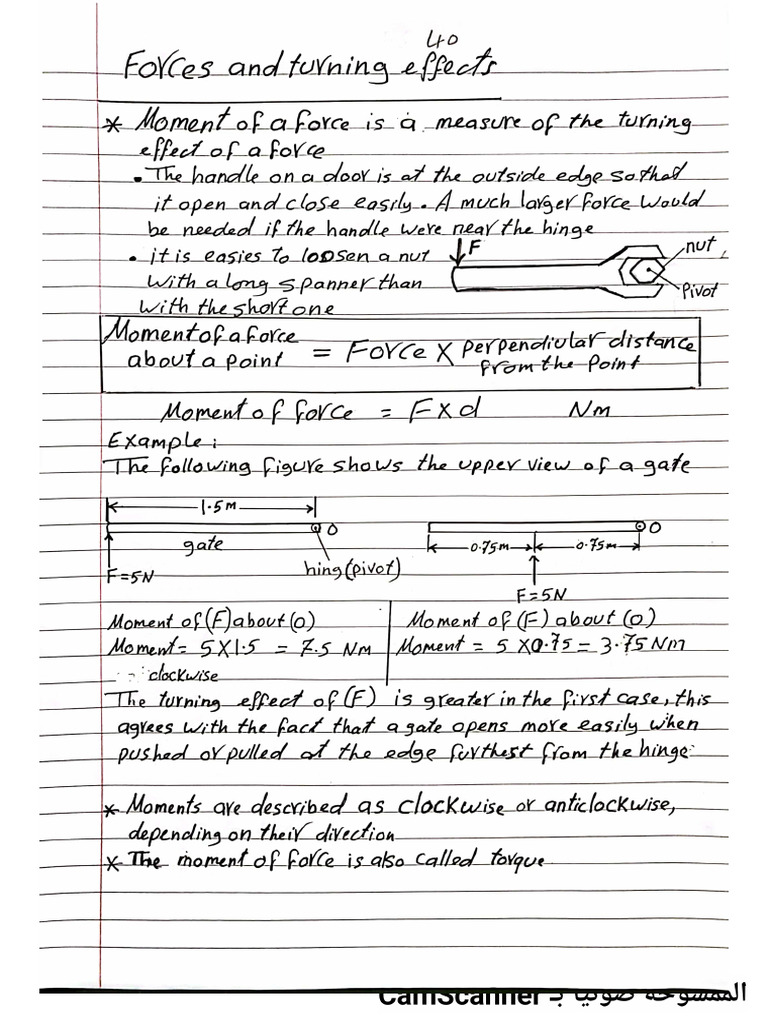 40
Forces and turning effects
* Moment of a force is a measure of the turning
effect of a force
• The handle on a door is at the outside edge so that
it open and close easily. A much larger force would
be needed if the handle were near the hinge
• it is easies to loosen a nut
with a long spanner than
with the short one
F
nut
Pivot
Moment of a force
about a point = Force X perpendiular distance
from the point
Moment of force = F X d Nm
Example:
The following figure shows the upper view of a gate
1.5 m
O
gate
hing (pivot)
F = 5N
O
0.75m 0.75m
F = 5N
Moment of (F) about (O)
Moment = 5 X 1.5 = 7.5 Nm
clockwise
Moment of (F) about (O)
Moment = 5 X 0.75 = 3.75 Nm
The turning effect of (F) is greater in the first case, this
agrees with the fact that a gate opens more easily when
pushed or pulled at the edge furthest from the hinge.
* Moments are described as clockwise or anticlockwise,
depending on their direction
* The moment of force is also called torque
الممسوحة ضوئيا بـ CamScanner